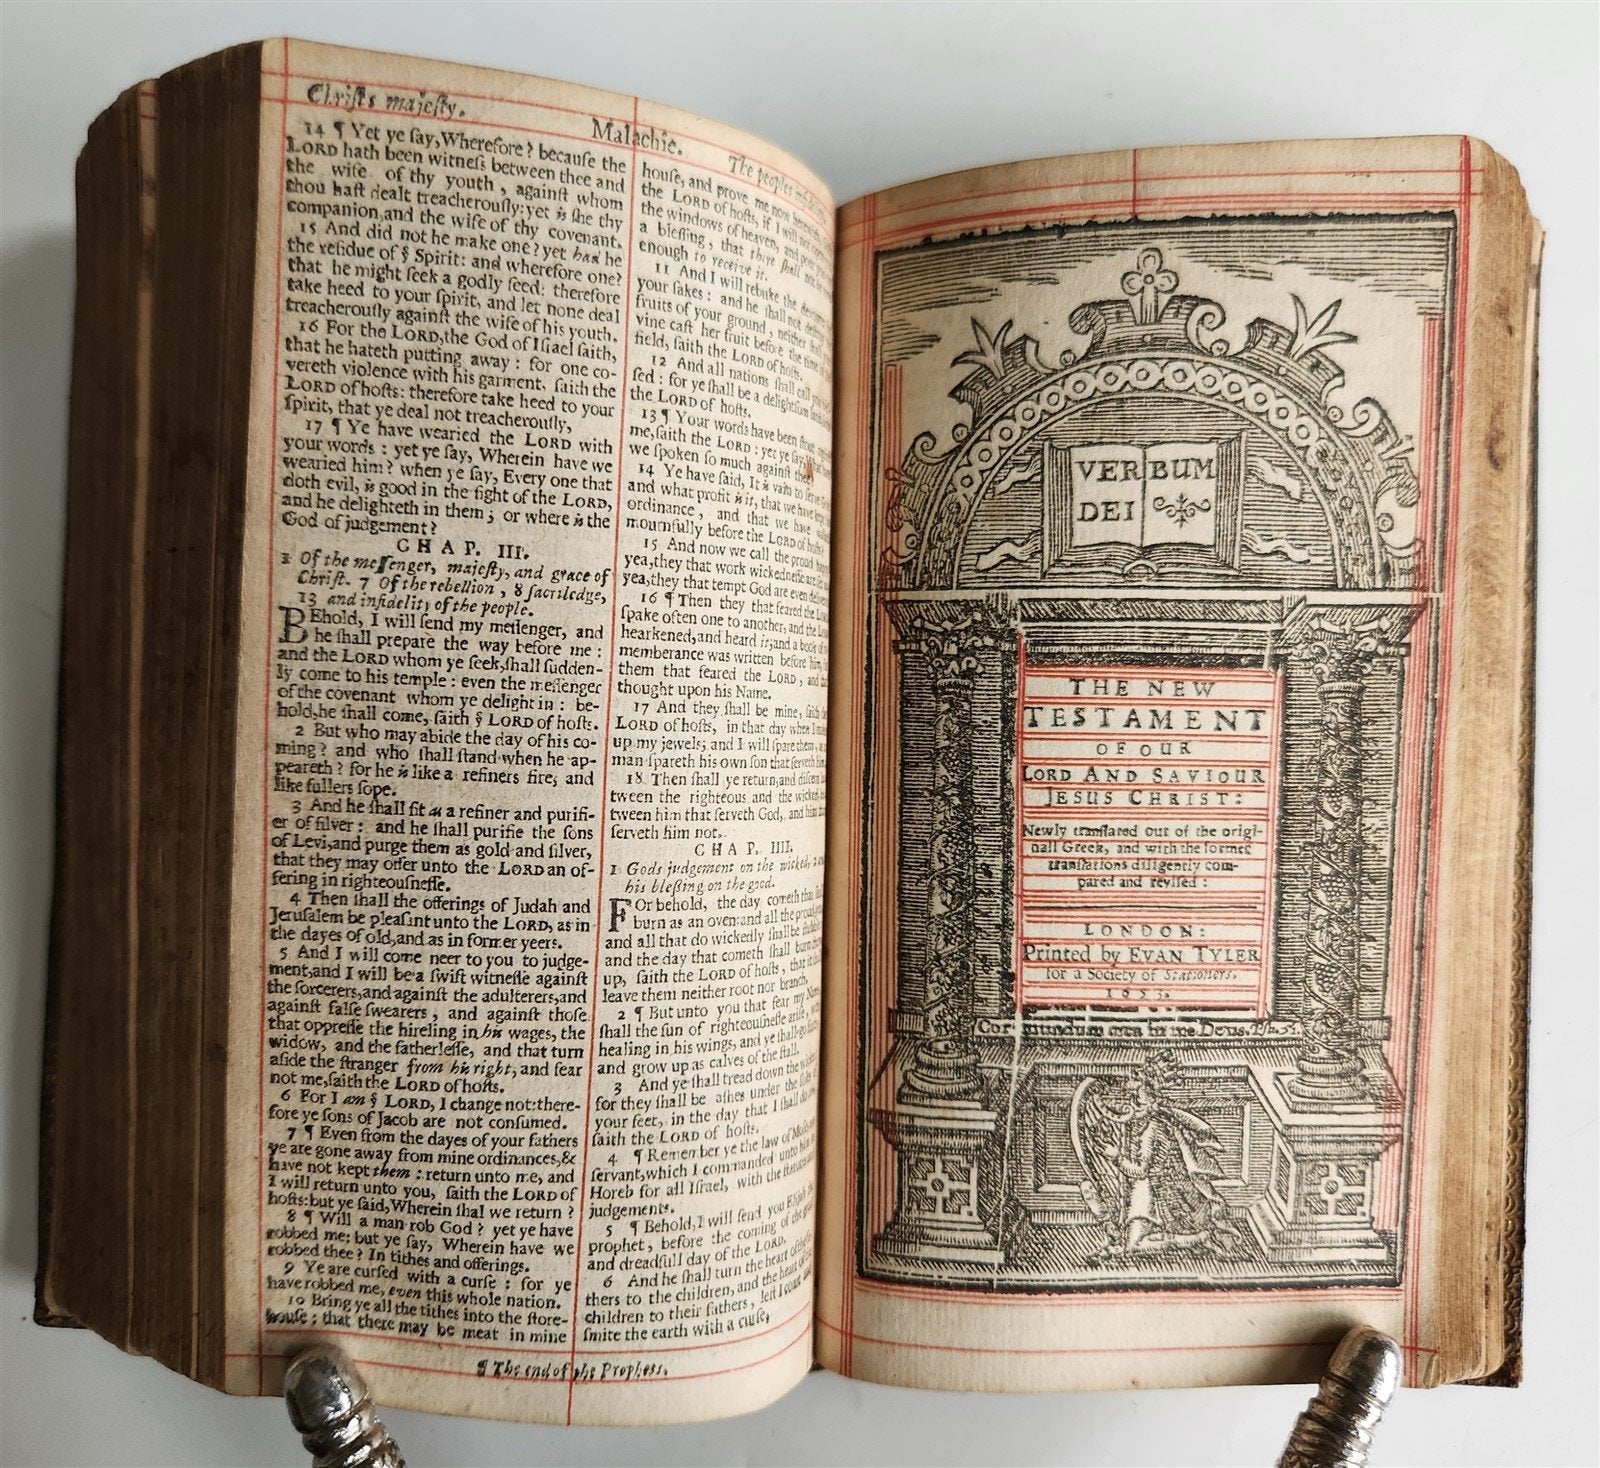 Christs majesty.
Malachie.
The peoples
14 ¶ Yet ye ſay, Wherefore? becauſe the
LORD hath been witneſs between thee and
the wife of thy youth, againſt whom
thou haſt dealt treacherouſly: yet is ſhe thy
companion, and the wife of thy covenant.
15 And did not he make one? yet had he
the reſidue of ẏ Spirit: and wherefore one?
that he might ſeek a godly ſeed: therefore
take heed to your ſpirit, and let none deal
treacherouſly againſt the wife of his youth.
16 For the LORD, the God of Iſrael ſaith,
that he hateth putting away: for one co-
vereth violence with his garment, ſaith the
LORD of hoſts: therefore take heed to your
ſpirit, that ye deal not treacherouſly,
17 ¶ Ye have wearied the LORD with
your words: yet ye ſay, Wherein have we
wearied him? when ye ſay, Every one that
doth evil, is good in the ſight of the LORD,
and he delighteth in them; or where is the
God of judgement?
CHAP. III.
1 Of the meſſenger, majeſty, and grace of
Chriſt. 7 Of the rebellion, 8 ſacriledge,
13 and infidelity of the people.
BEhold, I will ſend my meſſenger, and
he ſhall prepare the way before me:
and the LORD whom ye ſeek, ſhall ſudden-
ly come to his temple: even the meſſenger
of the covenant whom ye delight in: be-
hold, he ſhall come, ſaith ẏ LORD of hoſts.
2 But who may abide the day of his co-
ming? and who ſhall ſtand when he ap-
peareth? for he is like a refiners fire, and
like fullers ſope.
3 And he ſhall ſit as a refiner and purifi-
er of ſilver: and he ſhall purifie the ſons
of Levi, and purge them as gold and ſilver,
that they may offer unto the LORD an of-
fering in righteouſneſſe.
4 Then ſhall the offerings of Judah and
Jeruſalem be pleaſant unto the LORD, as in
the dayes of old, and as in former yeers.
5 And I will come neer to you to judge-
ment, and I will be a ſwift witneſſe againſt
the ſorcerers, and againſt the adulterers, and
againſt falſe ſwearers, and againſt thoſe
that oppreſſe the hireling in his wages, the
widow, and the fatherleſſe, and that turn
aſide the ſtranger from his right, and fear
not me, ſaith the LORD of hoſts.
6 For I am ẏ LORD, I change not: there-
fore ye ſons of Jacob are not conſumed.
7 ¶ Even from the dayes of your fathers
ye are gone away from mine ordinances, &
have not kept them: return unto me, and
I will return unto you, ſaith the LORD of
hoſts: but ye ſaid, Wherein ſhal we return?
8 ¶ Will a man rob God? yet ye have
robbed me: but ye ſay, Wherein have we
robbed thee? In tithes and offerings.
9 Ye are curſed with a curſe: for ye
have robbed me, even this whole nation.
10 Bring ye all the tithes into the ſtore-
houſe; that there may be meat in mine
houſe, and prove me now
the LORD of hoſts, if I will not
the windows of heaven, and
a bleſſing, that there ſhall not
enough to receive it.
11 And I will rebuke the
your ſakes: and he ſhall not
fruits of your ground, neither
vine caſt her fruit before the time
field, ſaith the LORD of hoſts.
12 And all nations ſhall call
ſed: for ye ſhall be a delightſom
the LORD of hoſts.
13 ¶ Your words have been
me, ſaith the LORD: yet ye ſay,
we ſpoken ſo much againſt
14 Ye have ſaid, It is vain to ſerve
and what profit is it, that we have
ordinance, and that we have
mournfully before the LORD of
15 And now we call the proud
yea, they that work wickedneſſe are
yea, they that tempt God are even
16 ¶ Then they that feared the
ſpake often one to another, and the
hearkened, and heard it; and a book of
memberance was written before him,
them that feared the LORD, and
thought upon his Name.
17 And they ſhall be mine, ſaith
LORD of hoſts, in that day when I
up my jewels; and I will ſpare them,
man ſpareth his own ſon that ſerveth
18. Then ſhall ye return, and
tween the righteous and the wicked,
tween him that ſerveth God, and him
ſerveth him not.
CHAP. IIII.
1 Gods judgement on the wicked, 2
his bleſſing on the good.
FOr behold, the day cometh that
burn as an oven: and all the proud,
and all that do wickedly ſhall be
and the day that cometh ſhall burn
up, ſaith the LORD of hoſts, that
leave them neither root nor branch.
2 ¶ But unto you that fear my
ſhall the ſun of righteouſneſſe ariſe,
healing in his wings, and ye ſhall
and grow up as calves of the ſtall.
3 And ye ſhall tread down the
for they ſhall be aſhes under the
your feet, in the day that I ſhall do
ſaith the LORD of hoſts.
4 ¶ Remember ye the law of
ſervant, which I commanded unto
Horeb for all Iſrael, with the ſtatutes
judgements.
5 ¶ Behold, I will ſend you Elijah
prophet, before the coming of the
and dreadfull day of the LORD.
6 And he ſhall turn the heart of
thers to the children, and the heart of
children to their fathers, leſt I come
ſmite the earth with a curſe,
¶ The end of the Prophets.
VERBUM
DEI
THE NEW
TESTAMENT
OF OUR
LORD AND SAVIOUR
JESUS CHRIST:
Newly tranſlated out of the origi-
nall Greek, and with the former
tranſlations diligently com-
pared and reviſed:
LONDON:
Printed by EVAN TYLER
for a Society of Stationers.
1653.
Cor mundum crea in me Deus. Pſ. 51.